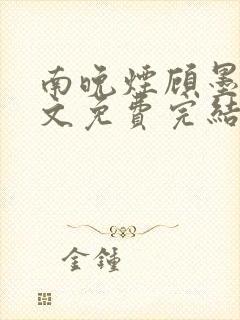 南晚煙顾墨
文免費完結
金鍾